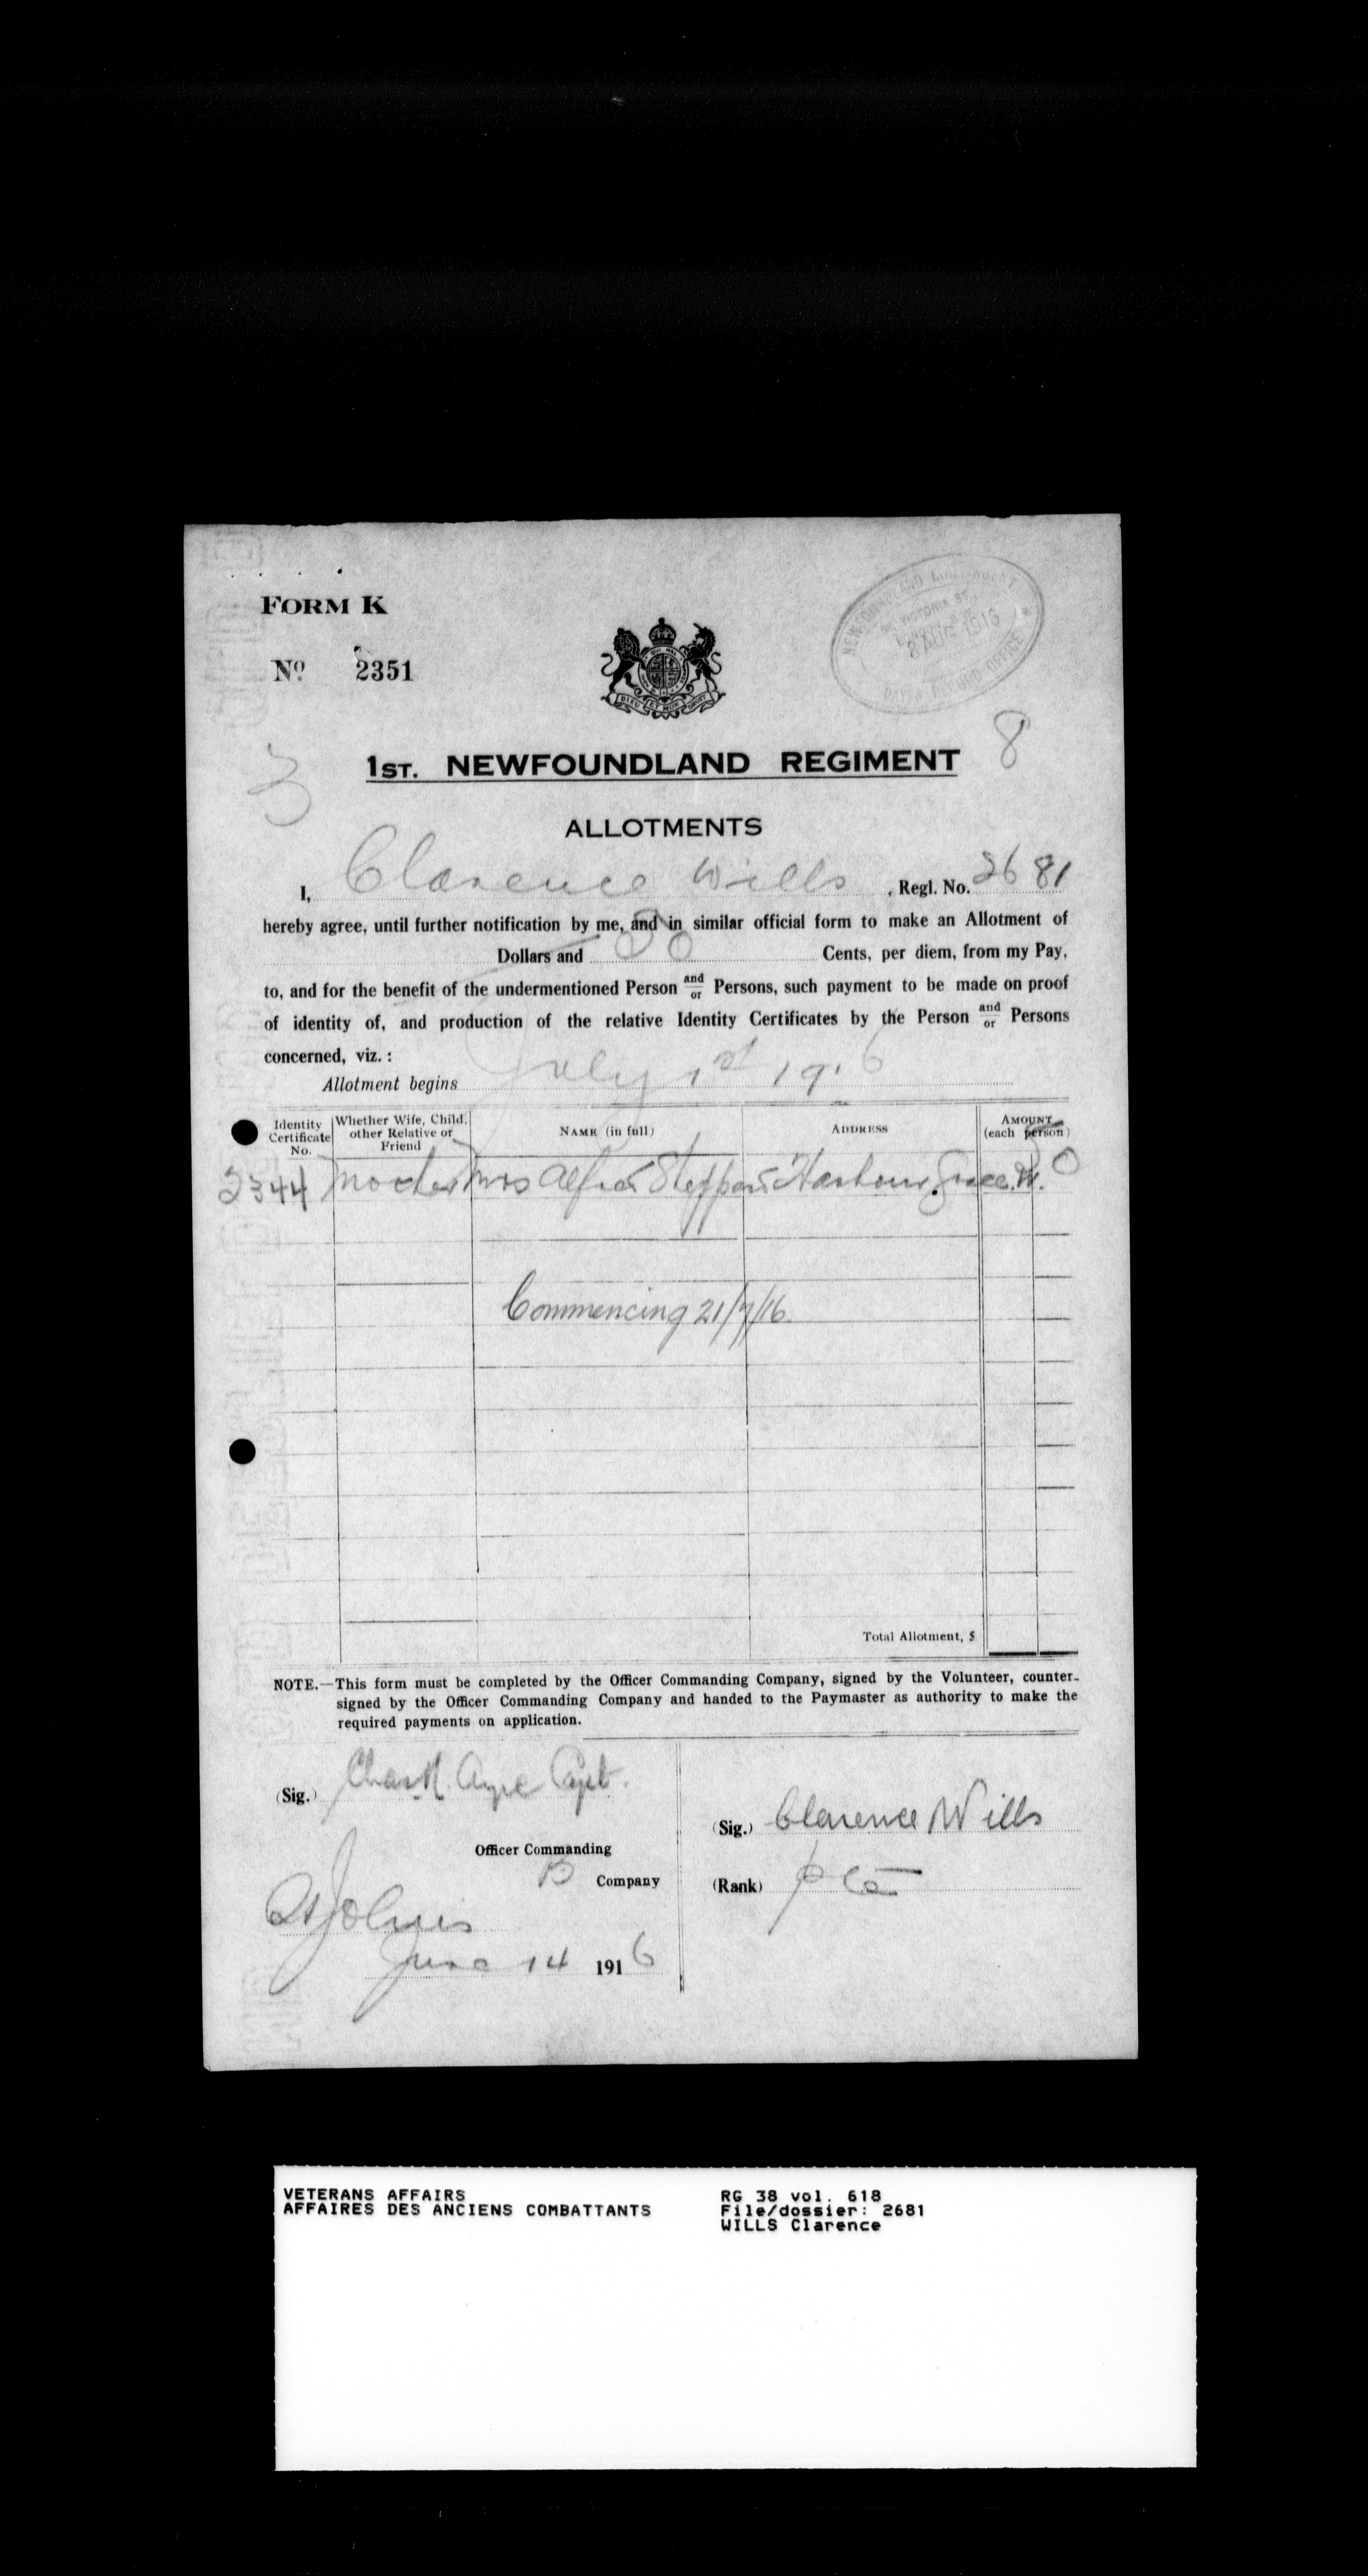 FORM K
NEWFOUNDLAND CONTINGENT
VICTORIA ST
8 AUG 1916
PAY & RECORD OFFICE
No 2351
DIEU ET MON DROIT
3
8
1ST. NEWFOUNDLAND REGIMENT
ALLOTMENTS
I, Clarence Wills, Regl. No. 2681
hereby agree, until further notification by me, and in similar official form to make an Allotment of
Dollars and 80 Cents, per diem, from my Pay,
to, and for the benefit of the undermentioned Person and/or Persons, such payment to be made on proof
of identity of, and production of the relative Identity Certificates by the Person and/or Persons
concerned, viz.:
Allotment begins July 1st 1916
Identity Certificate No. Whether Wife, Child, other Relative or Friend NAME (in full) ADDRESS AMOUNT (each person)
2344 Mother Mrs Alfred Sheppard Harbour Grace. 80
Commencing 21/7/16.
Total Allotment, $
NOTE.—This form must be completed by the Officer Commanding Company, signed by the Volunteer, counter-
signed by the Officer Commanding Company and handed to the Paymaster as authority to make the
required payments on application.
(Sig.) Chas R. Ayre Capt.
Officer Commanding
B Company
St Johns
June 14 1916
(Sig.) Clarence Wills
(Rank) Pte
VETERANS AFFAIRS
AFFAIRES DES ANCIENS COMBATTANTS
RG 38 vol. 618
File/dossier: 2681
WILLS Clarence